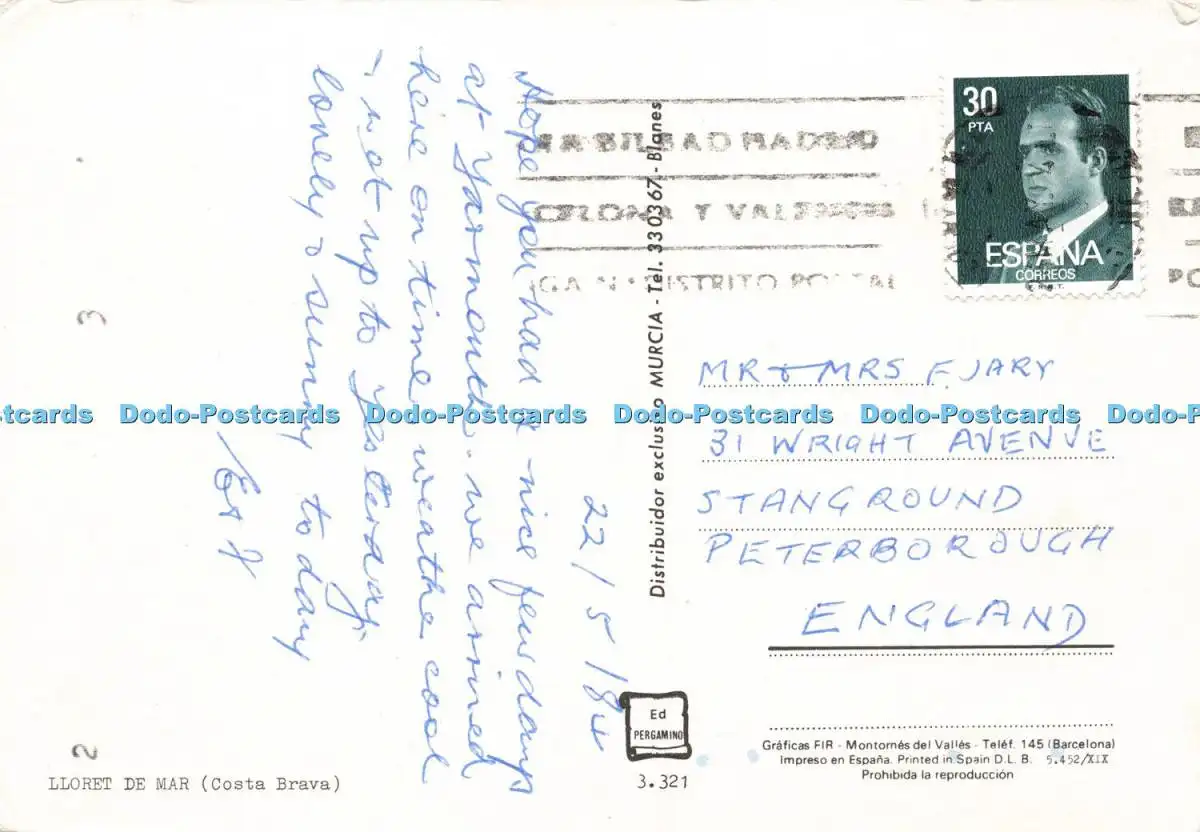 22/5/84
Hope you had a nice few days
at Yarmouth. we arrived
here on time, weather cool
not up to yesterday,
lonely & sunny to day
30
PTA
ESPAÑA
CORREOS
F.N.M.T.
BILBAO MADRID
CELONA Y VALENCIA
DISTRITO POSTAL
MR & MRS F. JARY
31 WRIGHT AVENUE
STANGROUND
PETERBOROUGH
ENGLAND
Distribuidor exclusivo MURCIA - Tel. 330367 - Blanes
Dodo-Postcards Dodo-Postcards Dodo-Postcards Dodo-Postcards
3
2
LLORET DE MAR (Costa Brava)
Ed
PERGAMINO
3.321
Gráficas FIR - Montornés del Vallés - Teléf. 145 (Barcelona)
Impreso en España. Printed in Spain D.L. B. 5.452/XIX
Prohibida la reproducción